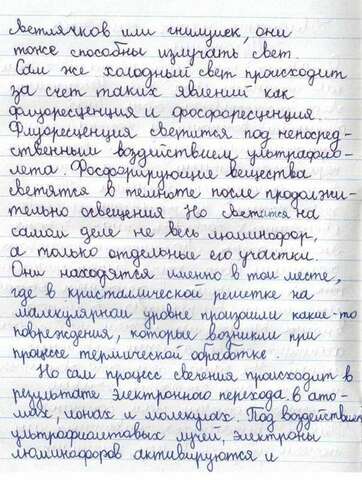 светлячков или гнилушек, они
тоже способны излучать свет.
Сам же холодный свет происходит
за счет таких явлений как
флуоресценция и фосфоресценция.
Флуоресценция светится под непосред-
ственным воздействием ультрафио-
лета. Фосфорирующие вещества
светятся в темноте после продолжи-
тельно освещения Но светится на
самом деле не весь люминофор,
а только отдельные его участки.
Они находятся именно в том месте,
где в кристаллической решетке на
малекулярном уровне произошли какие-то
повреждения, которые возникли при
процессе термической обработке.
Но сам процесс свечения происходит в
результате электронного перехода в ато-
мах, ионах и молекулах. Под воздействием
ультрафиалтовых лучей, электроны
люминофоров активируются и